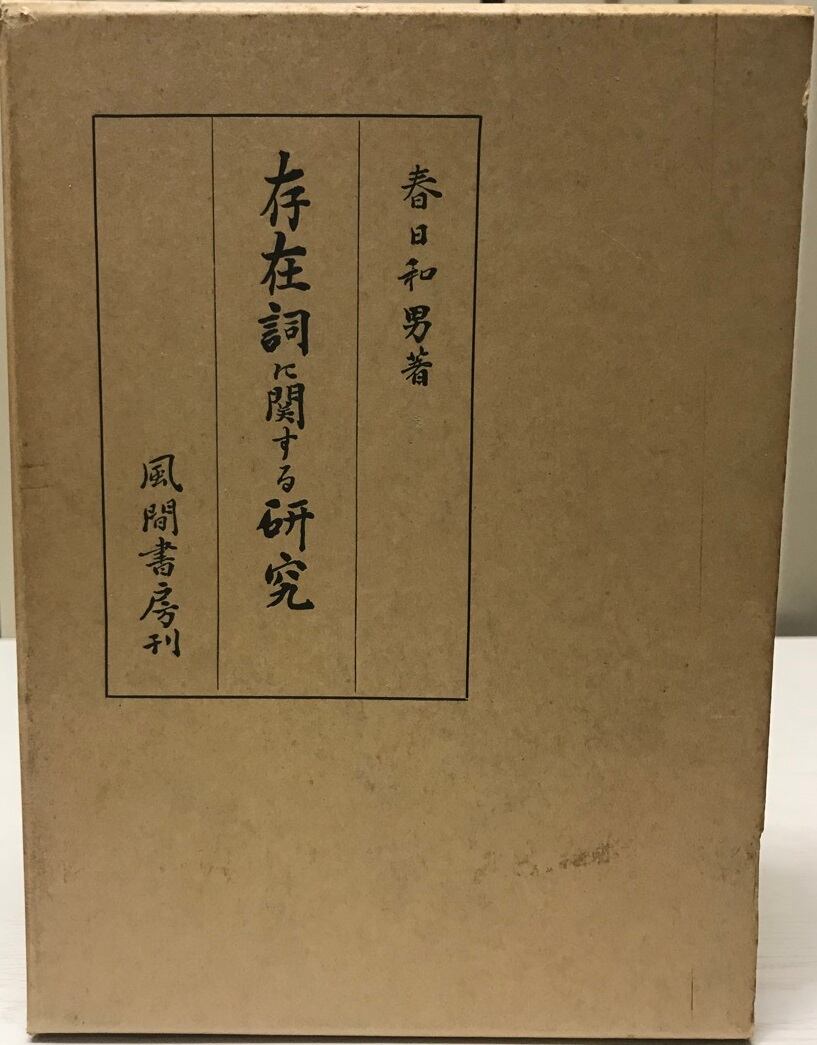 春日和男著
存在詞に関する研究
風間書房刊